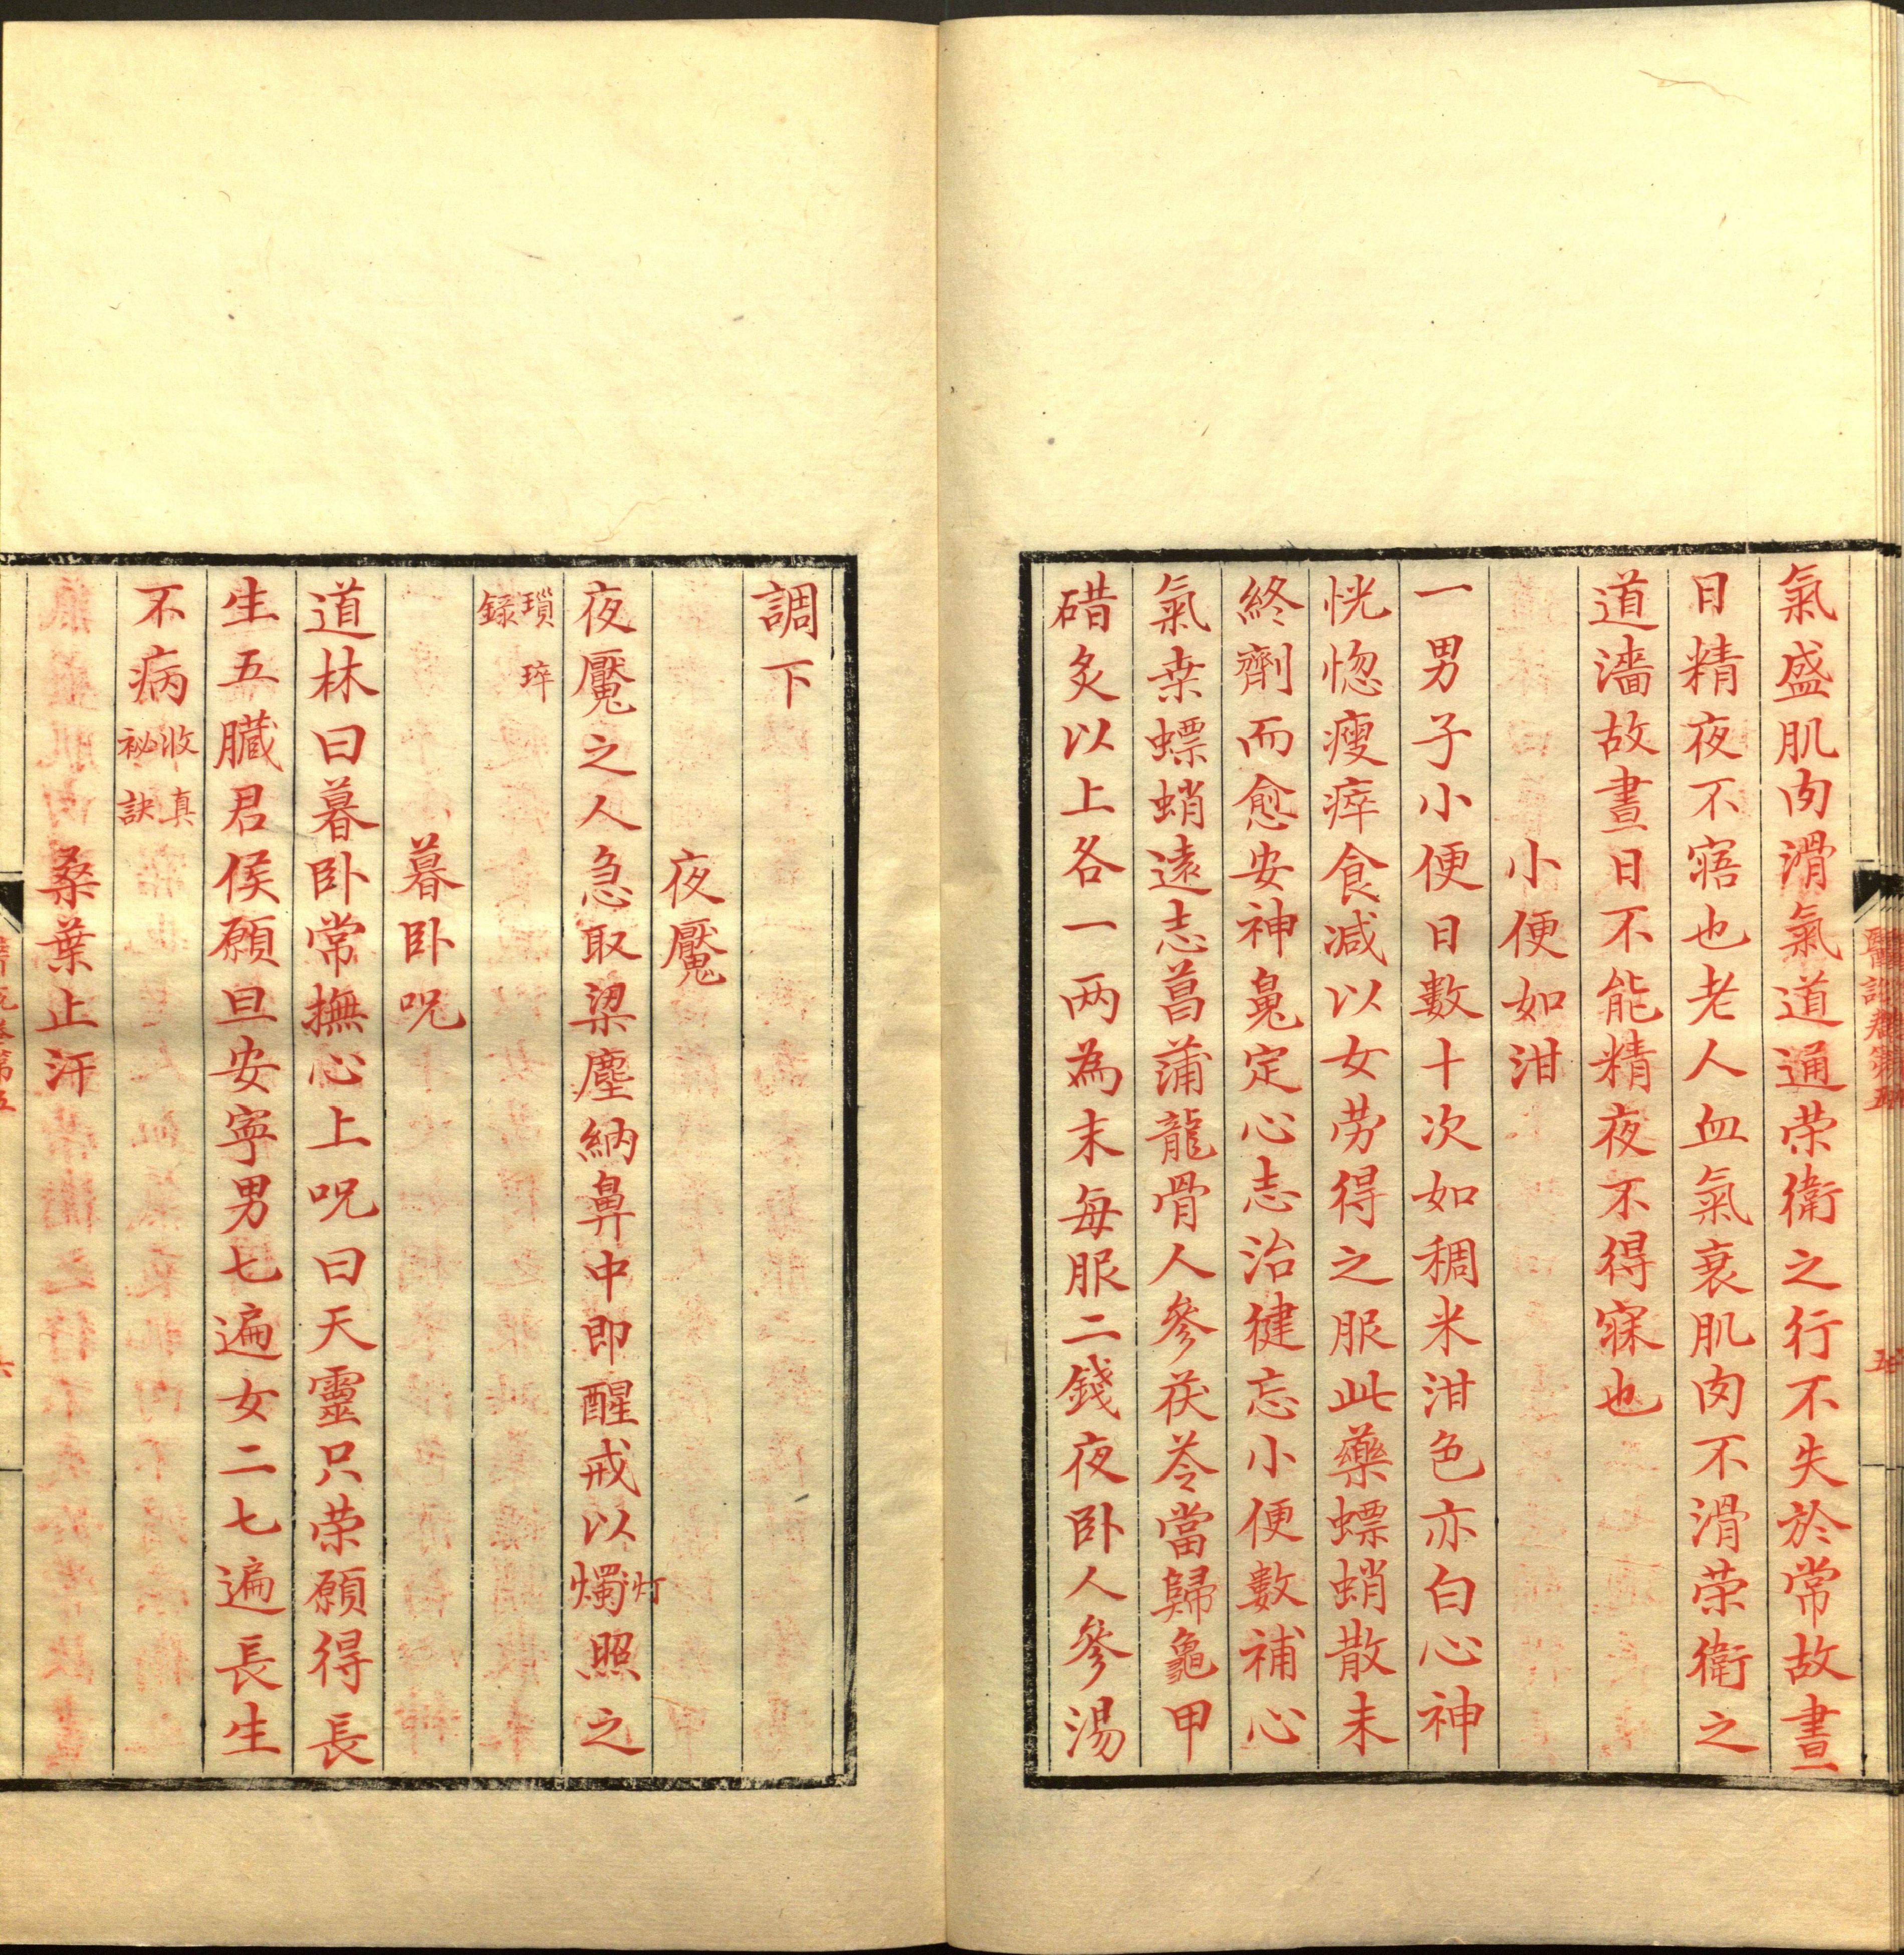 氣盛肌肉滑氣道通荣衛之行不失於常故晝
日精夜不寤也老人血氣衰肌肉不滑荣衛之
道濇故晝日不能精夜不得寐也
小便如泔
一男子小便日數十次如稠米泔色亦白心神
恍惚瘦瘁食减以女勞得之服此藥螵蛸散未
終劑而愈安神䰟定心志治健忘小便數補心
氣桒螵蛸遠志菖蒲龍骨人參茯苓當歸龜甲
醋炙以上各一两為末每服二錢夜卧人參湯
醫說卷第五
五
調下
夜魘
夜魘之人急取梁塵納鼻中即醒戒以灯燭照之
瑣碎録
暮卧呪
道林曰暮卧常撫心上呪曰天靈只荣願得長
生五臓君侯願旦安寕男七遍女二七遍長生
不病收真祕訣
桑葉止汗
卷第五
六